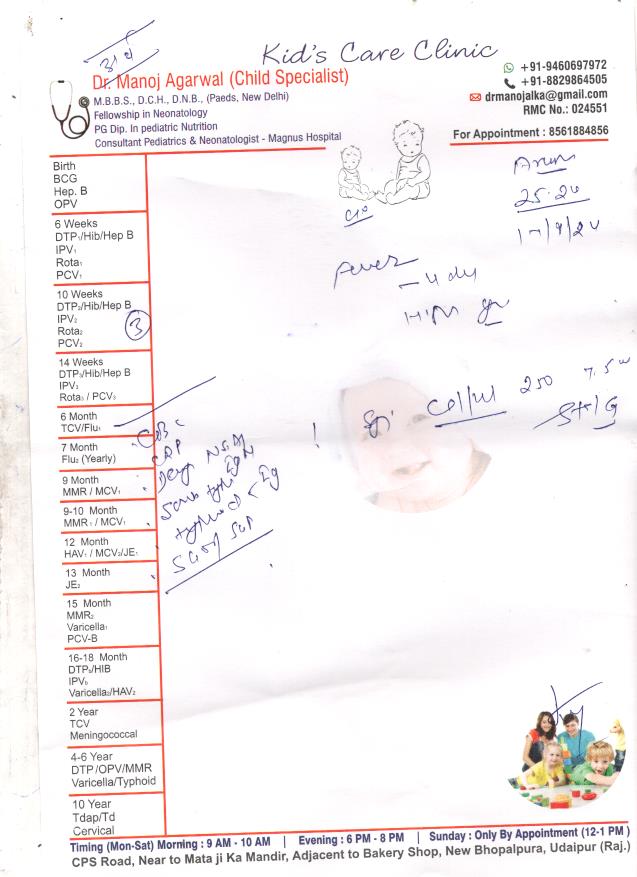 Kid's Care Clinic
Dr. Manoj Agarwal (Child Specialist)
M.B.B.S., D.C.H., D.N.B., (Paeds, New Delhi)
Fellowship in Neonatology
PG Dip. In pediatric Nutrition
Consultant Pediatrics & Neonatologist - Magnus Hospital
+91-9460697972
+91-8829864505
drmanojalka@gmail.com
RMC No.: 024551
For Appointment : 8561884856
25.20
Fever
CBC
CRP
250 7.5
Birth
BCG
Hep. B
OPV
6 Weeks
DTP₁/Hib/Hep B
IPV₁
Rota₁
PCV₁
10 Weeks
DTP₂/Hib/Hep B
IPV₂
Rota₂
PCV₂
3
14 Weeks
DTP₃/Hib/Hep B
IPV₃
Rota₃ / PCV₃
6 Month
TCV/Flu₁
7 Month
Flu₂ (Yearly)
9 Month
MMR / MCV₁
9-10 Month
MMR₁ / MCV₁
12 Month
HAV₁ / MCV₂/JE₁
13 Month
JE₂
15 Month
MMR₂
Varicella₁
PCV-B
16-18 Month
DTP₄/HIB
IPV₆
Varicella₂/HAV₂
2 Year
TCV
Meningococcal
4-6 Year
DTP /OPV/MMR
Varicella/Typhoid
10 Year
Tdap/Td
Cervical
Timing (Mon-Sat) Morning : 9 AM - 10 AM | Evening : 6 PM - 8 PM | Sunday : Only By Appointment (12-1 PM )
CPS Road, Near to Mata ji Ka Mandir, Adjacent to Bakery Shop, New Bhopalpura, Udaipur (Raj.)